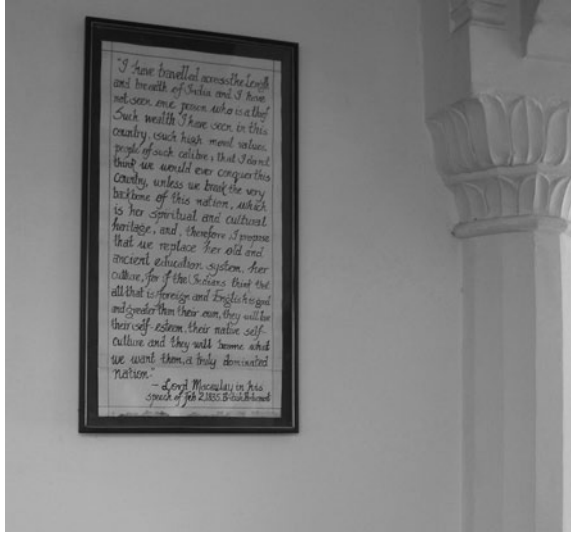 "I have travelled across the length
and breadth of India and I have
not seen one person who is a thief
Such wealth I have seen in this
country, such high moral values,
people of such calibre, that I do not
think we would ever conquer this
country, unless we break the very
backbone of this nation, which
is her spiritual and cultural
heritage, and, therefore, I propose
that we replace her old and
ancient education system, her
culture, for if the Indians think that
all that is foreign and English is good
and greater than their own, they will lose
their self-esteem, their native self-
culture and they will become what
we want them, a truly dominated
nation."
- Lord Macaulay in his
speech of Feb 2, 1835, British Parliament